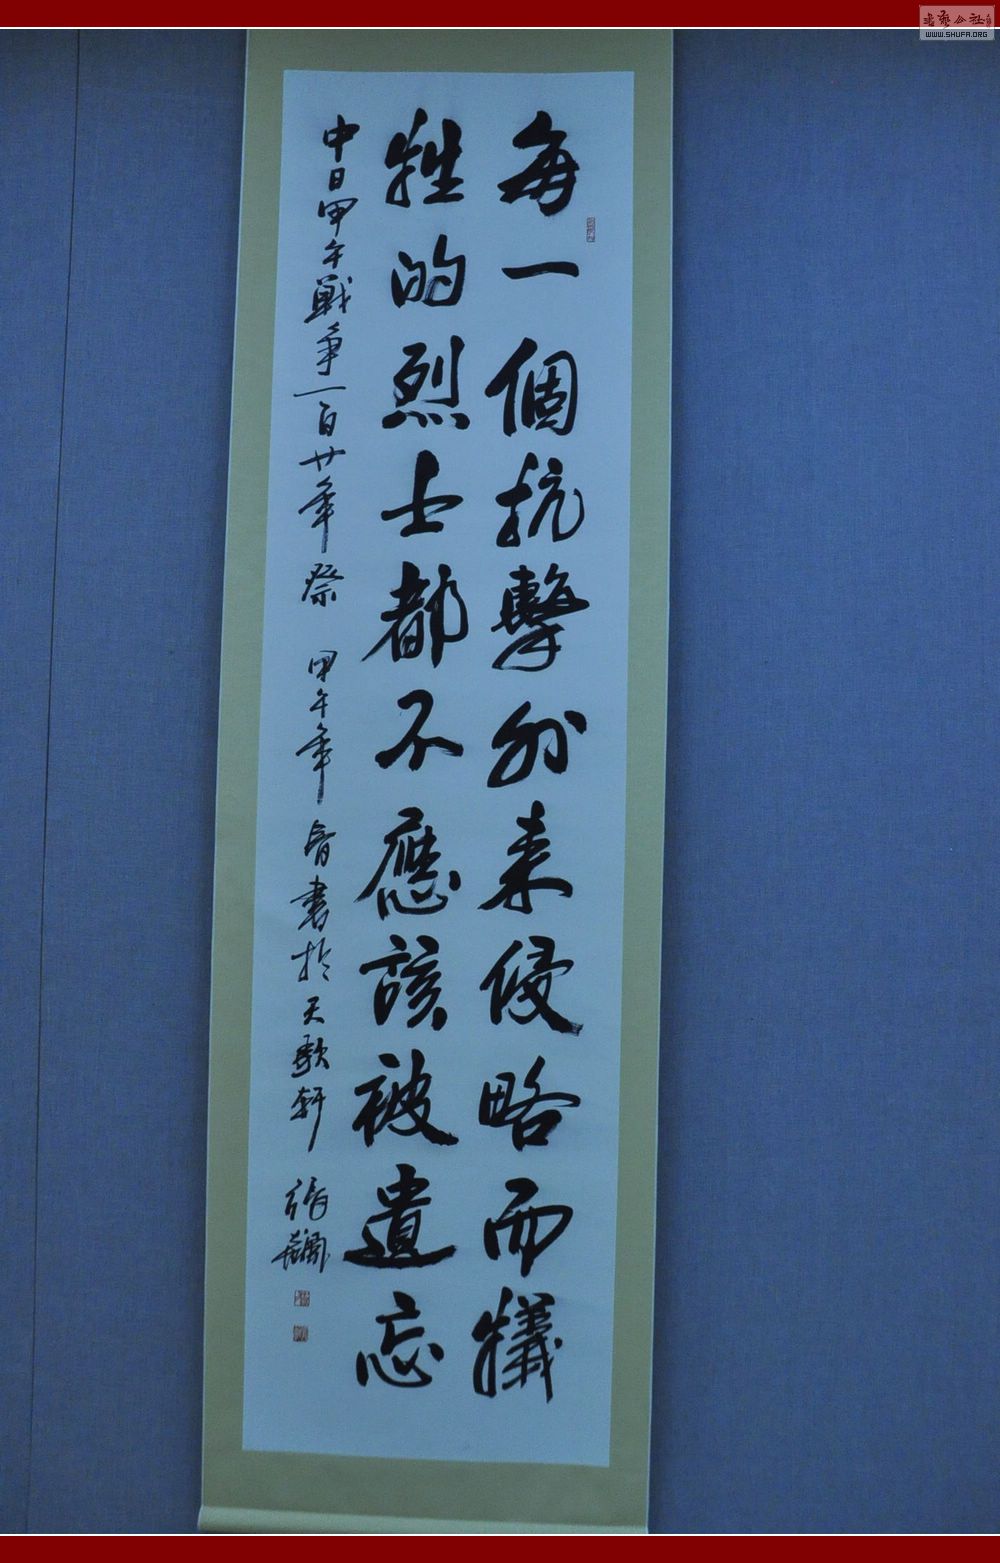 每一個抗擊外来侵略而犧
牲的烈士都不應該被遺忘
中日甲午戰争一百廿年祭 甲午年春書於天歌軒 張
WWW.SHUFA.ORG